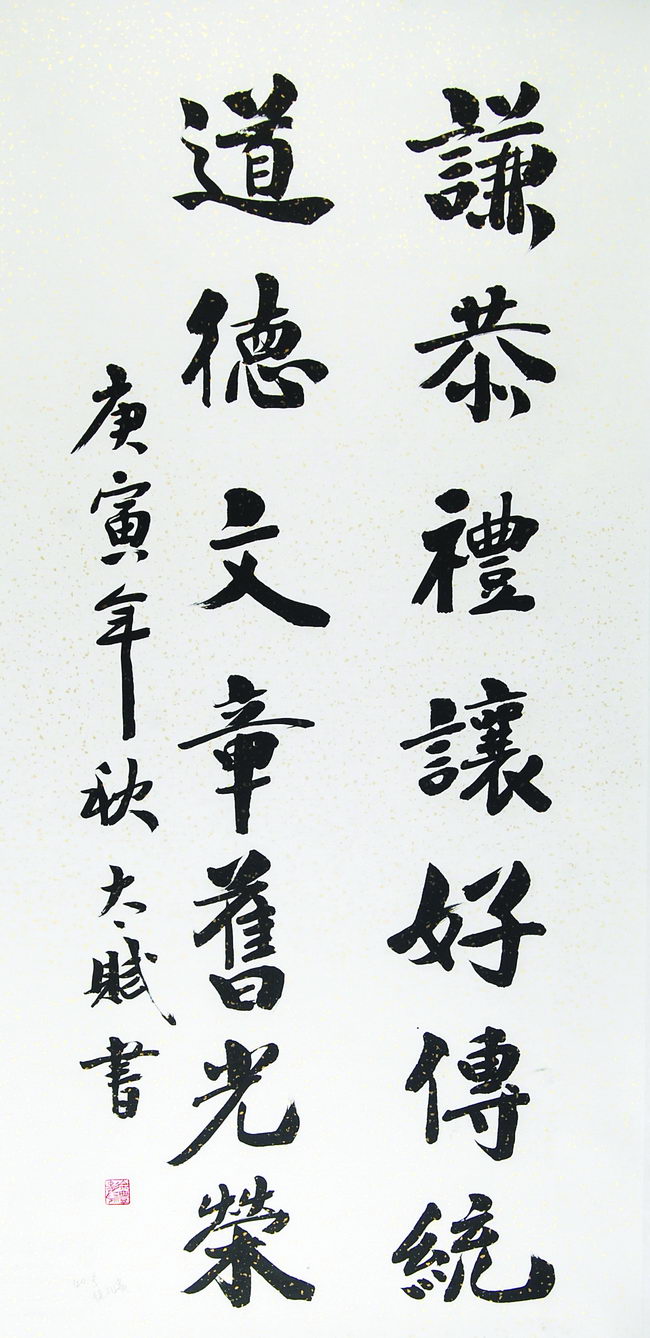 謙恭禮讓好傳統
道德文章舊光榮
庚寅年秋大賦書